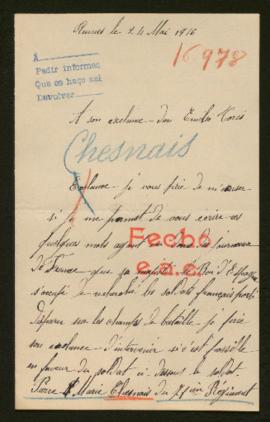 Rennes le 24 Mai 1916
16.978
A
Pedir informes
Que os haço sai
Devolver
A son exelence - don Emilio
Chesnais
Exelence - je vous prie de
si je me permet de vous écrire ces
quelques mots ayant
de France - que sa majesté le Roi d'Espagne
s'occupé de les soldats français
disparu sur les champs de bataille - je prie
son exelence d'intervenir si c'est possible
en faveur du soldat ci dessous le soldat
Pierre Marie Chesnais du 71 ième Régiment
Fecho
e.a.c.